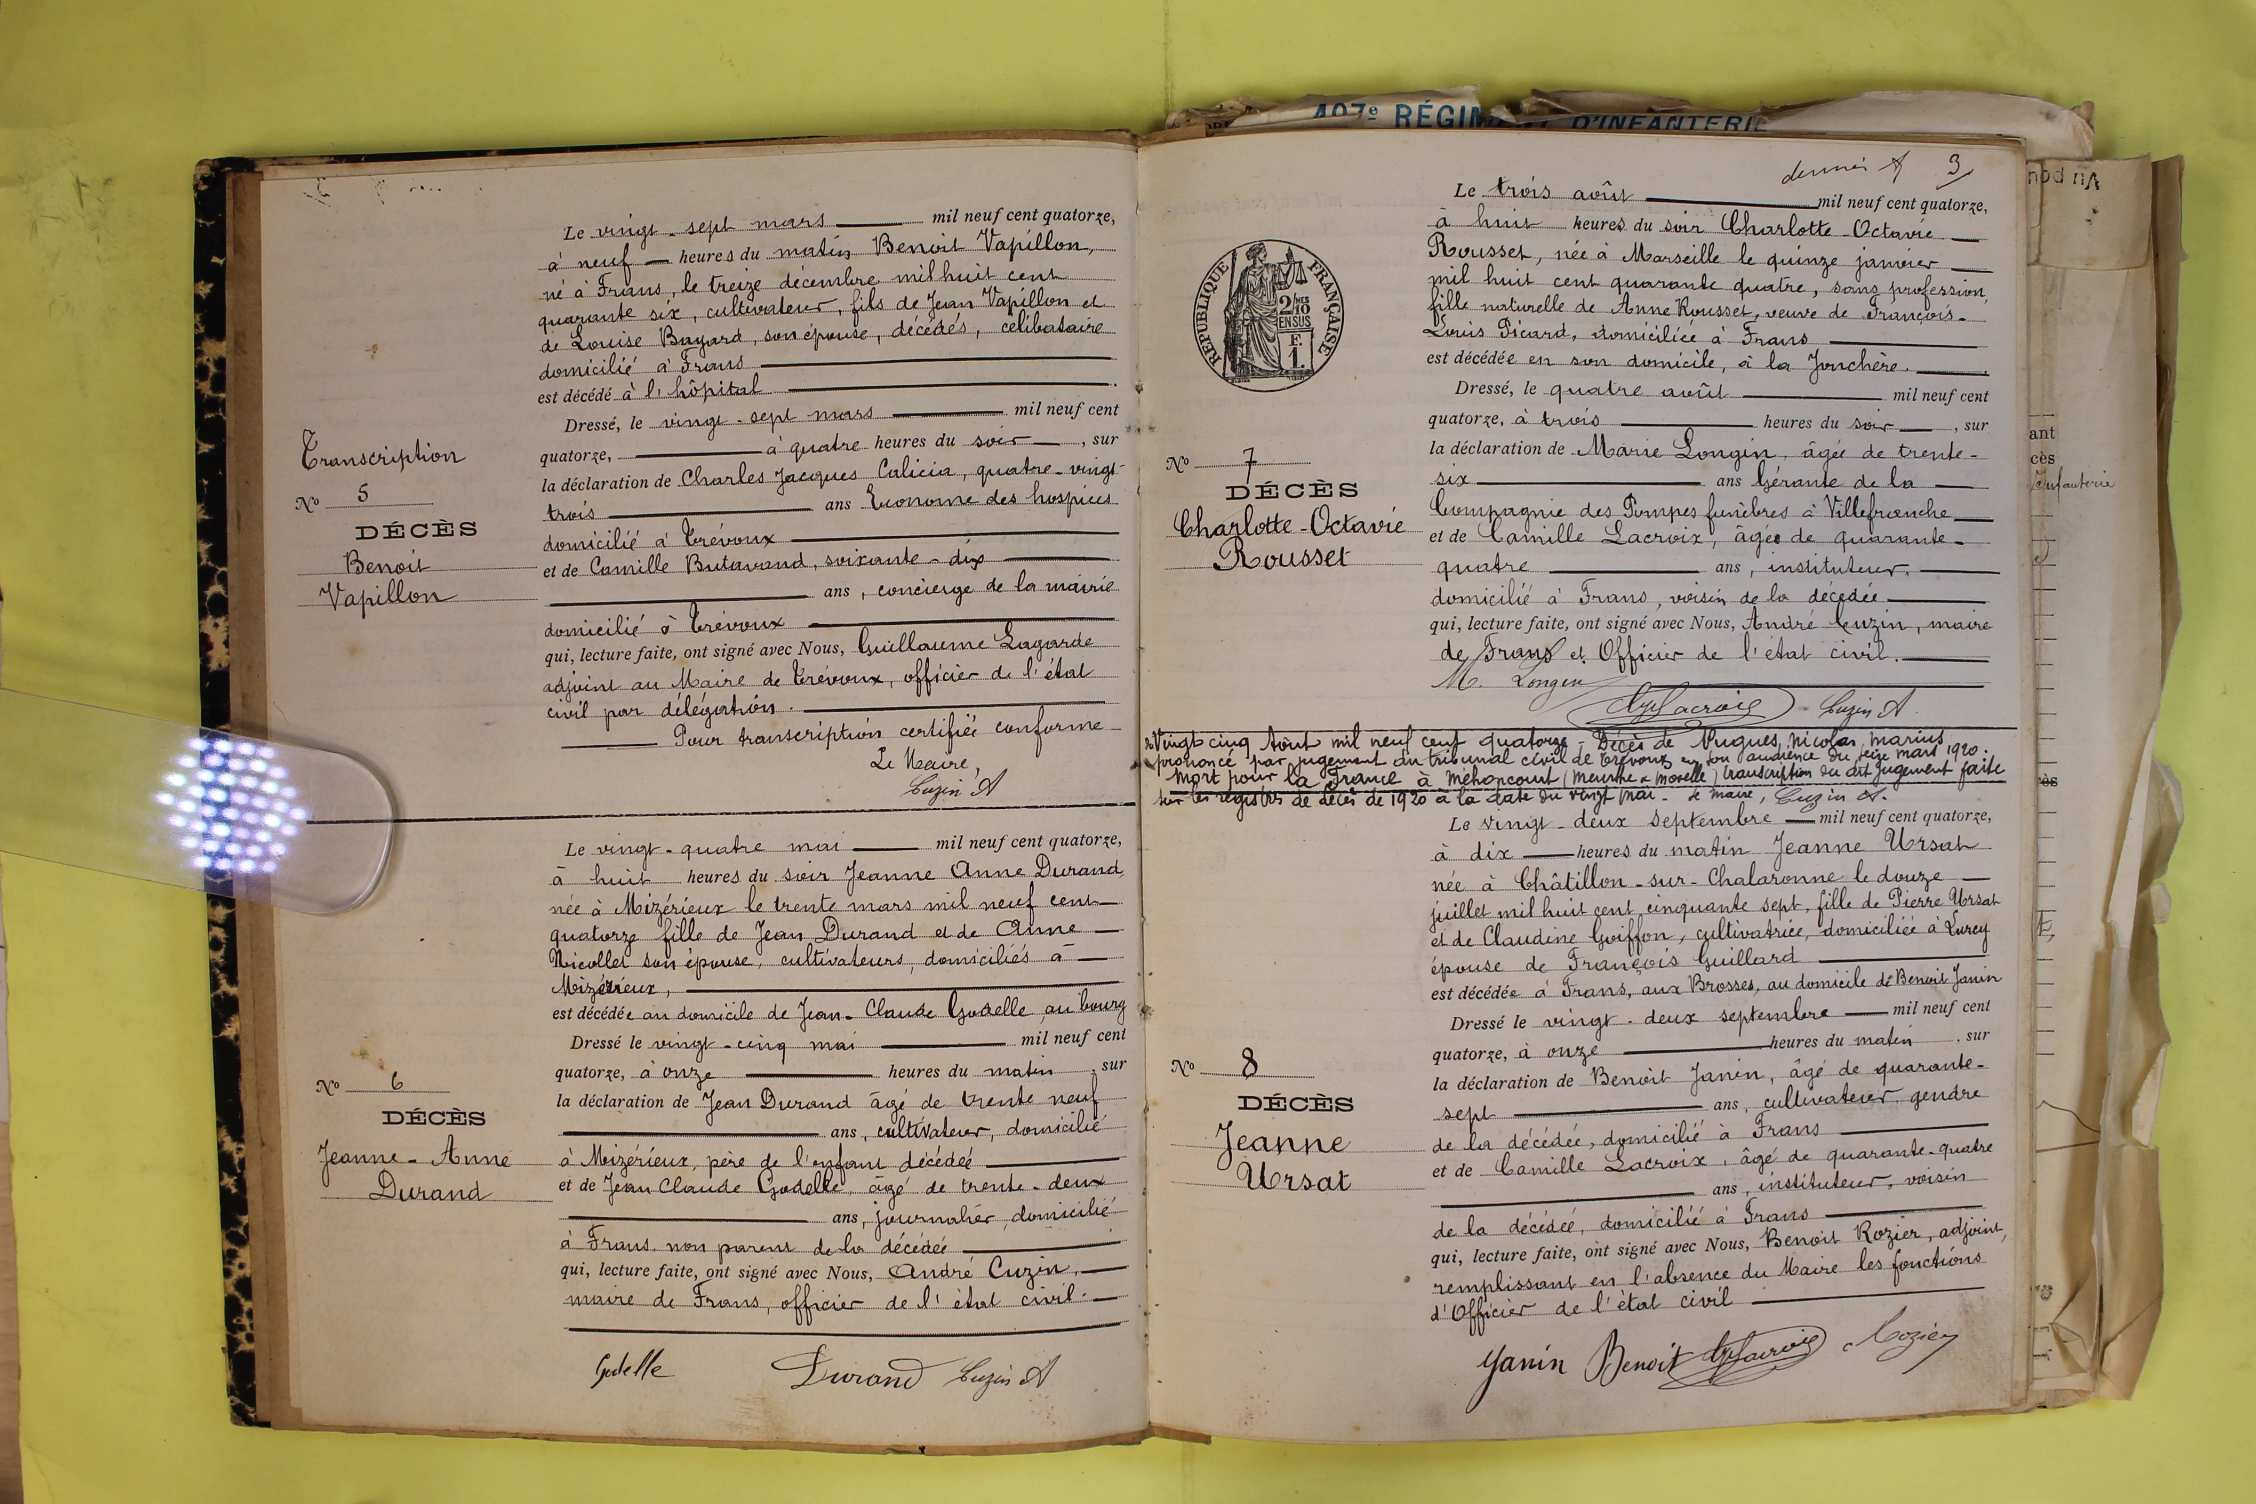 Le vingt-sept mars mil neuf cent quatorze,
à neuf heures du matin Benoit Vapillon,
né à Frans, le treize décembre mil huit cent
quarante six, cultivateur, fils de Jean Vapillon et
de Louise Bayard, son épouse, décédés, célibataire
domicilié à Frans
est décédé à l'hôpital
Dressé, le vingt-sept mars mil neuf cent
quatorze, à quatre heures du soir, sur
la déclaration de Charles Jacques Calicia, quatre-vingt-
trois ans Econome des hospices
domicilié à Trévoux
et de Camille Butavand, soixante-dix
ans, concierge de la mairie
domicilié à Trévoux
qui, lecture faite, ont signé avec Nous, Guillaume Lagarde
adjoint au Maire de Trévoux, officier de l'état
civil par délégation.
Pour transcription certifiée conforme
Le Maire,
Cuzin A
Transcription
No 5
DÉCÈS
Benoit
Vapillon
Le vingt-quatre mai mil neuf cent quatorze,
à huit heures du soir Jeanne Anne Durand,
née à Mizérieux le trente mars mil neuf cent
quatorze fille de Jean Durand et de Anne
Nicollet son épouse, cultivateurs, domiciliés à
Mizérieux,
est décédée au domicile de Jean-Claude Godelle, au bourg
Dressé le vingt-cinq mai mil neuf cent
quatorze, à onze heures du matin, sur
la déclaration de Jean Durand âgé de trente neuf
ans, cultivateur, domicilié
à Mizérieux, père de l'enfant décédée
et de Jean Claude Godelle, âgé de trente-deux
ans, journalier, domicilié
à Frans. non parent de la décédée
qui, lecture faite, ont signé avec Nous, André Cuzin,
maire de Frans, officier de l'état civil.
Godelle Durand Cuzin A
No 6
DÉCÈS
Jeanne-Anne
Durand
407e RÉGIMENT D'INFANTERIE
3
Le trois août mil neuf cent quatorze,
à huit heures du soir Charlotte-Octavie
Rousset, née à Marseille le quinze janvier
mil huit cent quarante quatre, sans profession,
fille naturelle de Anne Rousset, veuve de François-
Louis Picard, domiciliée à Frans
est décédée en son domicile, à la Jonchère.
Dressé, le quatre août mil neuf cent
quatorze, à trois heures du soir, sur
la déclaration de Marie Longin, âgée de trente-
six ans Gérante de la
Compagnie des Pompes funèbres à Villefranche
et de Camille Lacroix, âgée de quarante-
quatre ans, instituteur,
domicilié à Frans, voisin de la décédée
qui, lecture faite, ont signé avec Nous, André Cuzin, maire
de Frans et Officier de l'état civil.
M. Longin Lacroix Cuzin A
RÉPUBLIQUE FRANÇAISE
2/10 EN SUS
F.
1.
No 7
DÉCÈS
Charlotte-Octavie
Rousset
Vingt cinq Août mil neuf cent quatorze - Décès de Hugues, Nicolas, Marius
prononcé par jugement du tribunal civil de Trévoux en son audience du seize mars 1920.
Mort pour la France à Méhoncourt (Meurthe & Moselle) transcription du dit jugement faite
sur les registres de décès de 1920 à la date du vingt mai. Le maire, Cuzin A.
Le vingt-deux septembre mil neuf cent quatorze,
à dix heures du matin Jeanne Ursat
née à Châtillon-sur-Chalaronne le douze
juillet mil huit cent cinquante sept, fille de Pierre Ursat
et de Claudine Goiffon, cultivatrice, domiciliée à Lurcy
épouse de François Guillard
est décédée à Frans, aux Brosses, au domicile de Benoit Janin
Dressé le vingt-deux septembre mil neuf cent
quatorze, à onze heures du matin, sur
la déclaration de Benoit Janin, âgé de quarante-
sept ans, cultivateur, gendre
de la décédée, domicilié à Frans
et de Camille Lacroix, âgé de quarante-quatre
ans, instituteur, voisin
de la décédée, domicilié à Frans
qui, lecture faite, ont signé avec Nous, Benoit Rozier, adjoint,
remplissant en l'absence du Maire les fonctions
d'Officier de l'état civil
Janin Benoit Lacroix Rozier
No 8
DÉCÈS
Jeanne
Ursat
ant
cès
Infanterie